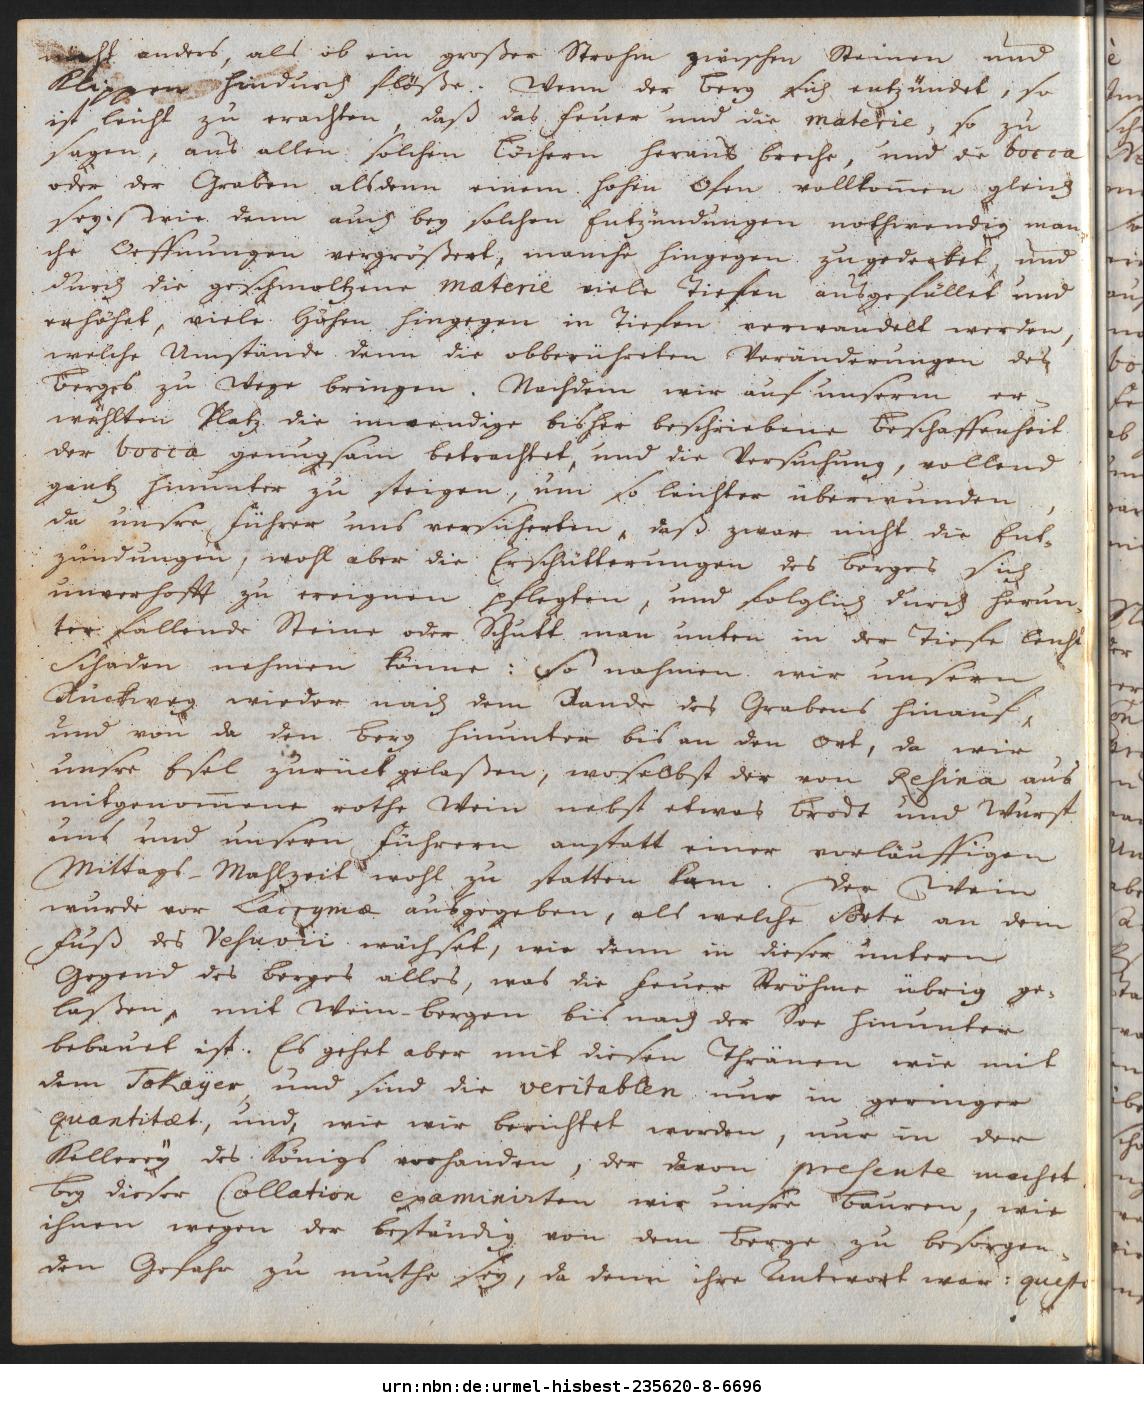 nicht anders, als ob ein großer Strohm zwischen Steinen und
Klippen hindurch flöße. Wenn der Berg sich entzündet, so
ist leicht zu erachten, daß das Feuer und die materie, so zu
sagen, aus allen solchen Löchern heraus breche, und die bocca
oder der Graben alsdenn einem hohen Ofen vollkom̄en gleich
sey: wie denn auch bey solchen Entzündungen nothwendig man-
che Oeffnungen vergrößert, manche hingegen zugedecket, und
durch die geschmoltzene materie viele Tiefen ausgefüllet und
erhöhet, viele Höhen hingegen in Tiefen verwandelt werden,
welche Umstände denn die obberührten Veränderungen des
Berges zu Wege bringen. Nachdem wir auf unserm er-
wehlten Platz die inwendige bisher beschriebene Beschaffenheit
der bocca genugsam betrachtet, und die Versuchung, vollend
gantz hinunter zu steigen, um so leichter überwunden,
da unsre Führer uns versicherten, daß zwar nicht die Ent-
zündungen, wohl aber die Erschütterungen des Berges sich
unverhofft zu ereignen pflegten, und folglich durch herun-
ter fallende Steine oder Schutt man unten in der Tiefe leicht
Schaden nehmen könne: So nahmen wir unsern
Rückweg wieder nach dem Rande des Grabens hinauf,
und von da den Berg hinunter bis an den Ort, da wir
unsre Esel zurückgelaßen, woselbst der von Resina aus
mitgenom̄ene rothe Wein nebst etwas Brodt und Wurst
uns und unsern Führern anstatt einer vorläuffigen
Mittags-Mahlzeit wohl zu statten kam. Der Wein
wurde vor Lacrymæ ausgegeben, als welche Sorte an dem
Fuß des Vesuvii wächset, wie denn in dieser untern
Gegend des Berges alles, was die Feuer Ströhme übrig ge-
laßen, mit Wein-bergen bis nach der See hinunter
bebauet ist. Es gehet aber mit diesen Thränen wie mit
dem Tokayer, und sind die veritablen nur in geringer
quantitæt, und, wie wir berichtet worden, nur in der
Kellerey des Königs vorhanden, der davon presente machet.
Bey dieser Collation examinirten wir unsre Bauren, wie
ihnen wegen der beständig von dem Berge zu besorgen-
den Gefahr zu muthe sey, da denn ihre Antwort war: questo
urn:nbn:de:urmel-hisbest-235620-8-6696